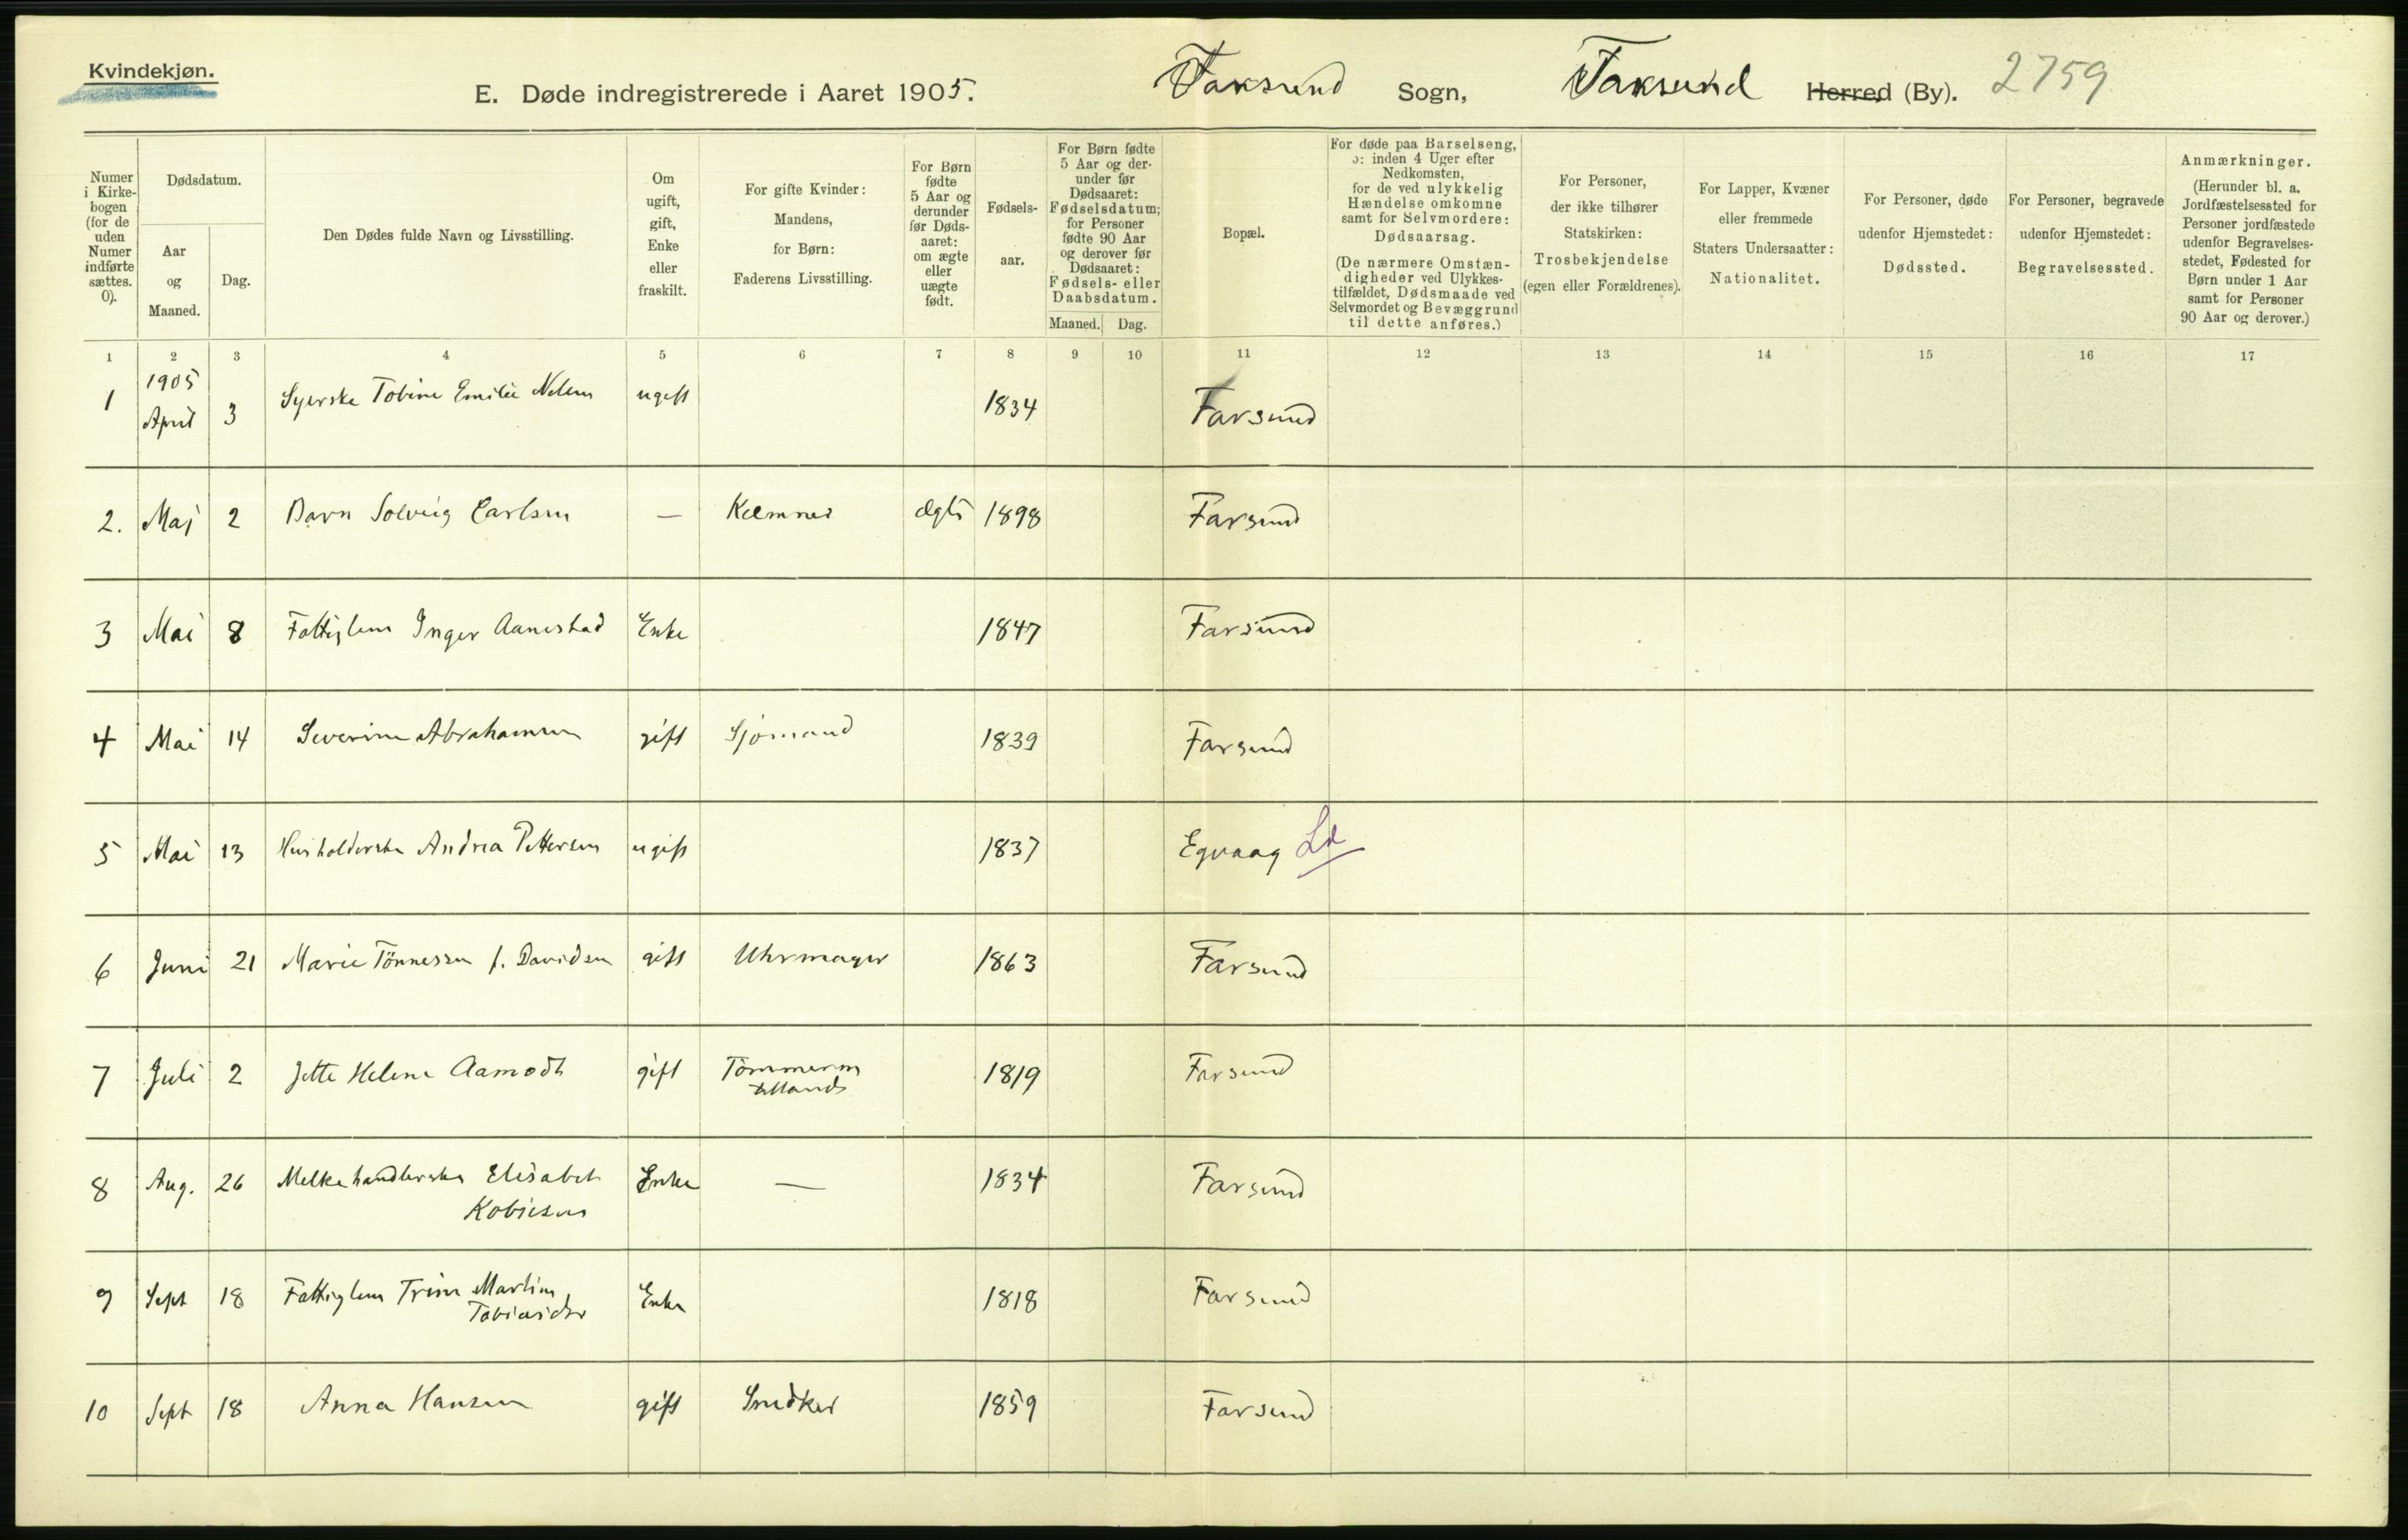 Kvindekjøn.
E. Døde indregistrerede i Aaret 1905. Farsund Sogn, Farsund Herred (By). 2759
Numer i Kirkebogen (for de uden Numer indførte sættes. 0).
Dødsdatum.
Aar og Maaned.
Dag.
Den Dødes fulde Navn og Livsstilling.
Om ugift, gift, Enke eller fraskilt.
For gifte Kvinder: Mandens, for Børn: Faderens Livsstilling.
For Børn fødte 5 Aar og derunder før Dødsaaret: om ægte eller uægte født.
Fødselsaar.
For Børn fødte 5 Aar og derunder før Dødsaaret: Fødselsdatum; for Personer fødte 90 Aar og derover før Dødsaaret: Fødsels- eller Daabsdatum.
Maaned. Dag.
Bopæl.
For døde paa Barselseng, ɔ: inden 4 Uger efter Nedkomsten, for de ved ulykkelig Hændelse omkomne samt for Selvmordere: Dødsaarsag.
(De nærmere Omstændigheder ved Ulykkestilfældet, Dødsmaade ved Selvmordet og Bevæggrund til dette anføres.)
For Personer, der ikke tilhører Statskirken: Trosbekjendelse (egen eller Forældrenes).
For Lapper, Kvæner eller fremmede Staters Undersaatter: Nationalitet.
For Personer, døde udenfor Hjemstedet: Dødssted.
For Personer, begravede udenfor Hjemstedet: Begravelsessted.
Anmærkninger.
(Herunder bl. a. Jordfæstelsessted for Personer jordfæstede udenfor Begravelsesstedet, Fødested for Børn under 1 Aar samt for Personer 90 Aar og derover.)
1 2 3 4 5 6 7 8 9 10 11 12 13 14 15 16 17
1905
1 April 3 Syerske Tobine Emilie Nelsen ugift 1834 Farsund
2. Maj 2 Barn Solveig Carlsen — Kemner ægte 1898 Farsund
3 Mai 8 Fattiglem Inger Aanestad Enke 1847 Farsund
4 Mai 14 Severine Abrahamsen gift Sjømand 1839 Farsund
5 Mai 13 Husholderske Andrea Pettersen ugift 1837 Egvaag Ld
6 Juni 21 Marie Tönnessen f. Davidsen gift Uhrmager 1863 Farsund
7 Juli 2 Jette Helene Aamodt gift Tömmerm 1819 Farsund
8 Aug. 26 Melkehandlerske Elisabet Enke — 1834 Farsund
9 Sept 18 Fattiglem Trine Martine Enke 1818 Farsund
10 Sept 18 Anna Hansen gift Snedker 1859 Farsund